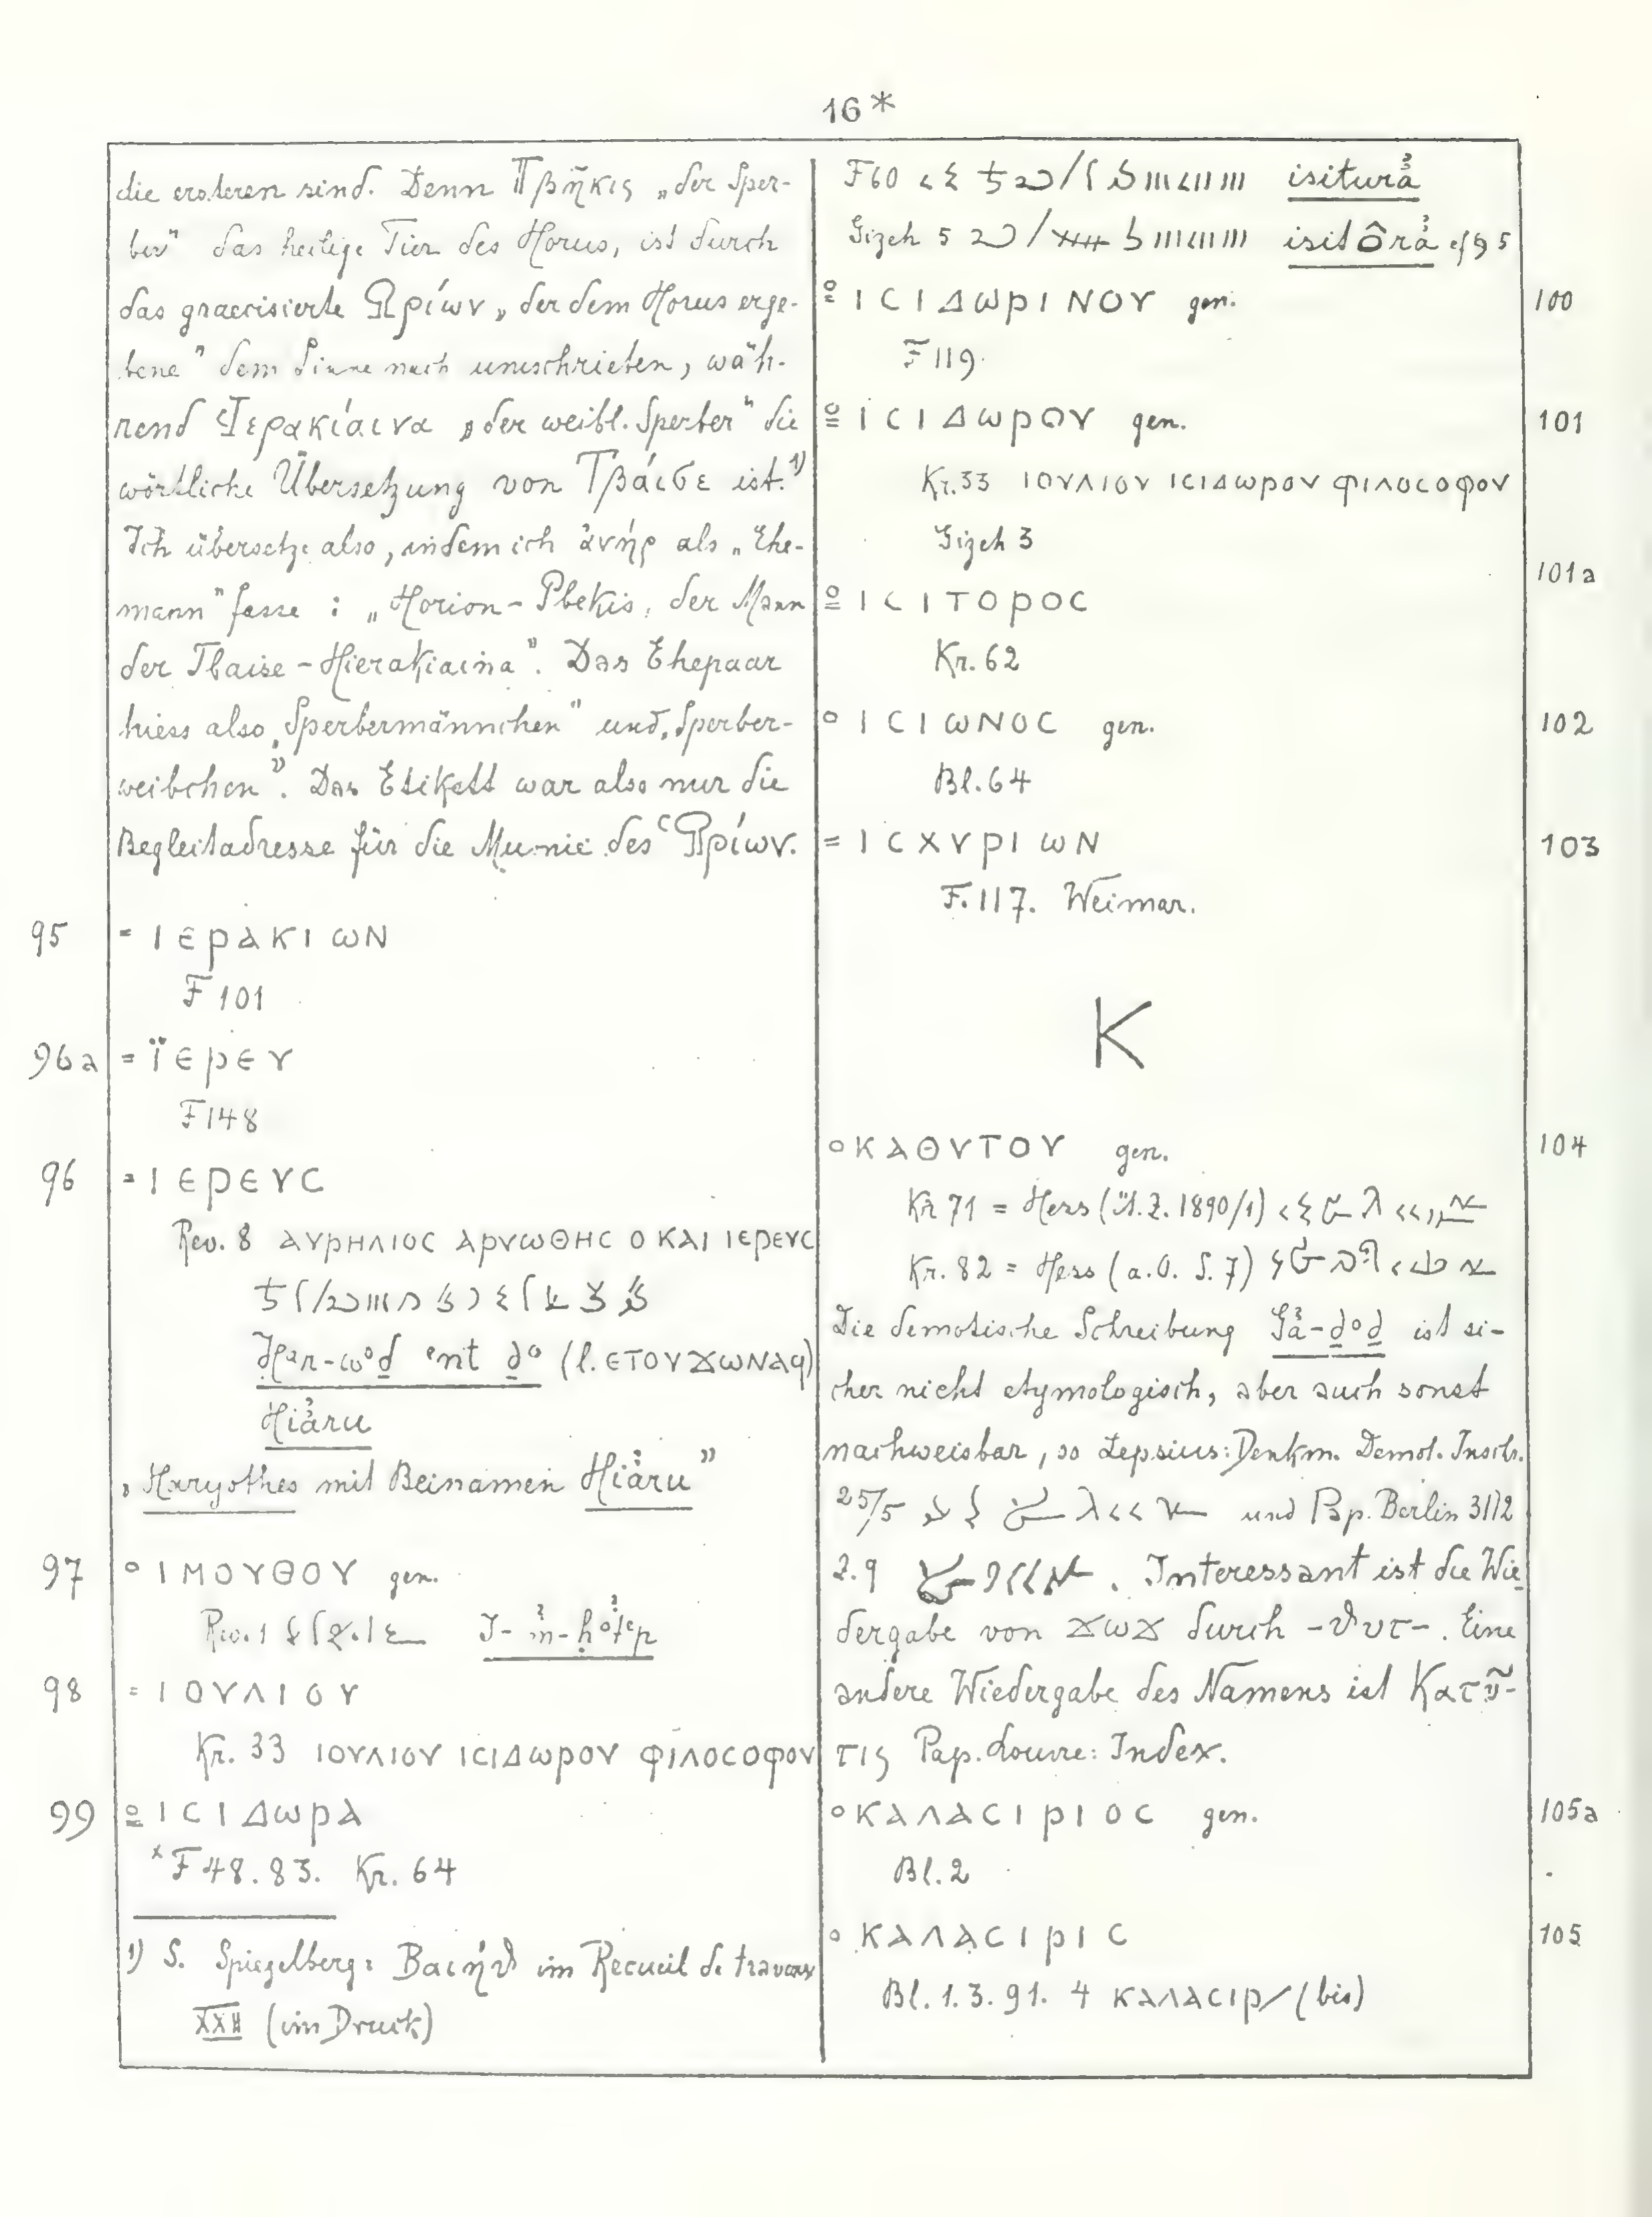 16*
die ersteren sind. Denn Πβῆκις „der Sper-
ber" das heilige Tier des Horus, ist durch
das graecisierte Ὡρίων „der dem Horus erge-
bene" dem Sinne nach umschrieben, wäh-
rend Ἱερακίαινα „der weibl. Sperber" die
wörtliche Übersetzung von Τβάισε ist.¹⁾
Ich übersetze also, indem ich ἀνήρ als „Ehe-
mann" fasse : „Horion-Pbekis, der Mann
der Tbaise-Hierakiaina". Das Ehepaar
hiess also „Sperbermännchen" und „Sperber-
weibchen". Das Etikett war also nur die
Begleitadresse für die Mumie des Ὡρίων.
95 = ΙΕΡΑΚΙΩΝ
F 101
96a = ΪΕΡΕΥ
F 148
96 = ΙΕΡΕΥC
Rev. 8 ΑΥΡΗΛΙΟC ΑΡΥΩΘΗC Ο ΚΑΙ ΙΕΡΕΥC
Har-wod ent do (l. ΕΤΟΥϪΩΝΑϤ)
Hiảru
„Haryothes mit Beinamen Hiảru"
97 o ΙΜΟΥΘΟΥ gen.
Rev. 1 I-m-hotep
98 = ΙΟΥΛΙΟΥ
Kr. 33 ΙΟΥΛΙΟΥ ΙCΙΔΩΡΟΥ ΦΙΛΟCΟΦΟΥ
99 o ΙCΙΔΩΡΑ
ˣF 48. 83. Kr. 64
1) S. Spiegelberg: Βαιήθ im Recueil de travaux
XXII (im Druck)
F 60 isiturả
Gizeh 5 isitôrả cf § 5
o ΙCΙΔΩΡΙΝΟΥ gen. 100
F 119.
o ΙCΙΔΩΡΟΥ gen. 101
Kr. 33 ΙΟΥΛΙΟΥ ΙCΙΔΩΡΟΥ ΦΙΛΟCΟΦΟΥ
Gizeh 3
o ΙCΙΤΟΡΟC 101a
Kr. 62
o ΙCΙΩΝΟC gen. 102
Bl. 64
= ΙCΧΥΡΙΩΝ 103
F. 117. Weimar.
K
o ΚΑΘΥΤΟΥ gen. 104
Kr. 71 = Hess (Ä.Z. 1890/1)
Kr. 82 = Hess (a.O. S. 7)
Die demotische Schreibung Gả-dod ist si-
cher nicht etymologisch, aber auch sonst
nachweisbar, so Lepsius: Denkm. Demot. Inschr.
25/5 und Pap. Berlin 3112
2.9 . Interessant ist die Wie-
dergabe von ϪΩϪ durch -θυτ-. Eine
andere Wiedergabe des Namens ist Κατῦ-
τις Pap. Louvre: Index.
o ΚΑΛΑCΙΡΙΟC gen. 105a
Bl. 2
o ΚΑΛΑCΙΡΙC 105
Bl. 1. 3. 91. 4 ΚΑΛΑCΙΡ/ (bis)